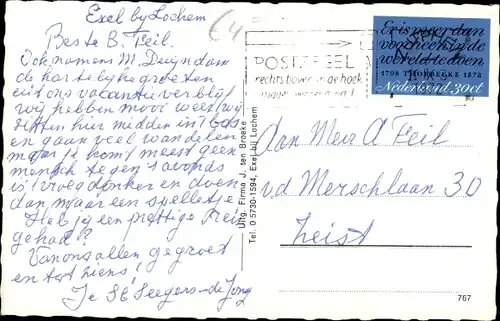 Exel by Lochem
Beste B. Feil.
Ook namens M. Duyndam
de hartelyke groeten
uit ons vacantie verblijf
wij hebben mooi weer, wij
zitten hier midden in 't bos
en gaan veel wandelen
maar je komt meest geen
mensch tegen 's avonds
is 't vroeg donker en doen
dan maar een spelletje
Heb je een prettige Reis
gehad?
Van ons allen gegroet
en tot ziens!
Seegers-de Jong
Uitg. Firma J. ten Broeke
Tel. 0 5730-1594, Exel bij Lochem
€4
POSTZEGEL
rechts boven in de hoek
Er is meer dan
voorheen in de
wereld te doen
1798 THORBECKE 1872
Nederland 30ct
Aan Mej A Feil
v.d Merschlaan 30
Zeist
767